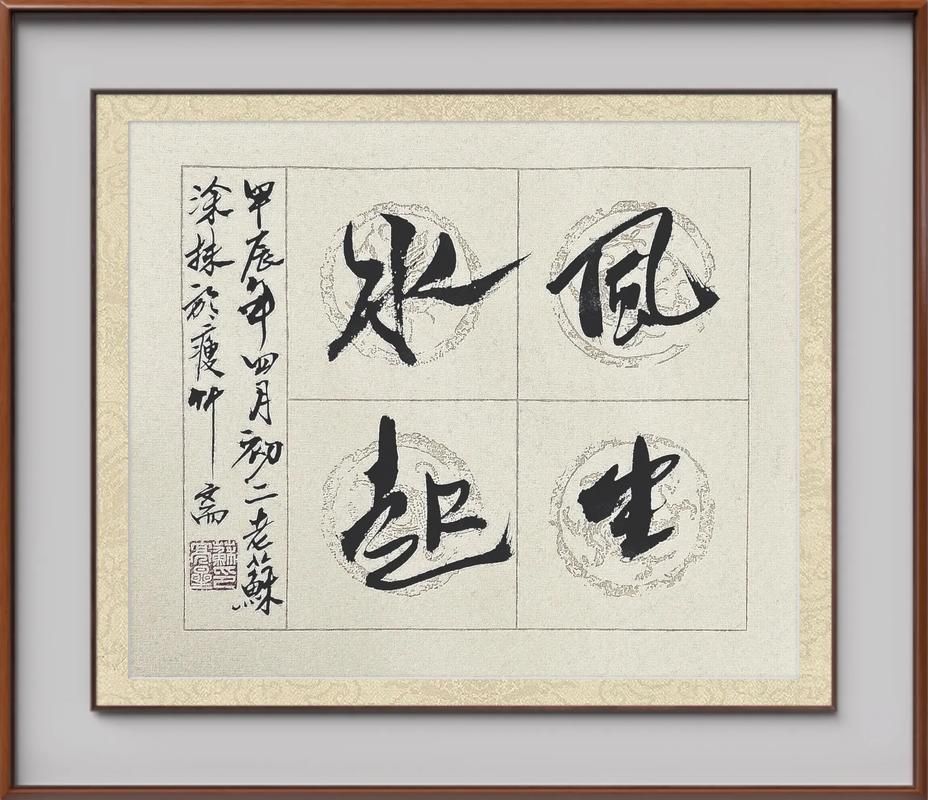 風生
水起
甲辰年四月初二老蘇
涂抹於瘦竹斋